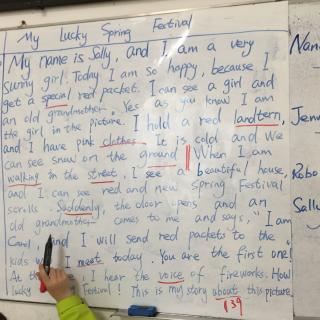 My Lucky Spring Festival
My name is Sally, and I am a very
sunny girl. Today I am so happy, because I
get a special red packet. I can see a girl and
an old grandmother. Yes as you know I am
the girl in the picture. I hold a red landtern,
and I have pink clothes. It is cold and we
can see snow on the ground. When I am
walking in the street, I see a beautiful house,
and I can see red and new Spring Festival
scrolls. Suddenly, the door opens and an
old grandmother comes to me and says, "I am
Carol, and I will send red packets to the
kids I meet today. You are the first one!
At the I hear the voice of fireworks. How
lucky Festival! This is my story about this picture.
139
Nanc
Jenn
Robo
Sally